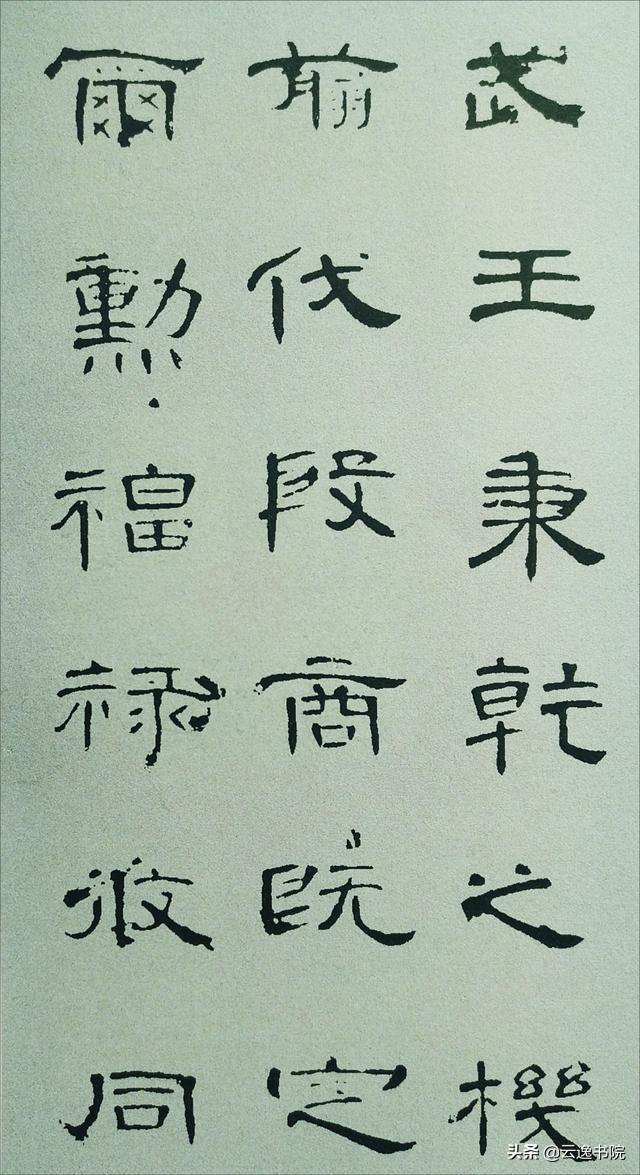 武王秉乾之機
翦伐殷商既定
爾勳福祿攸同
头条 @云逸书院